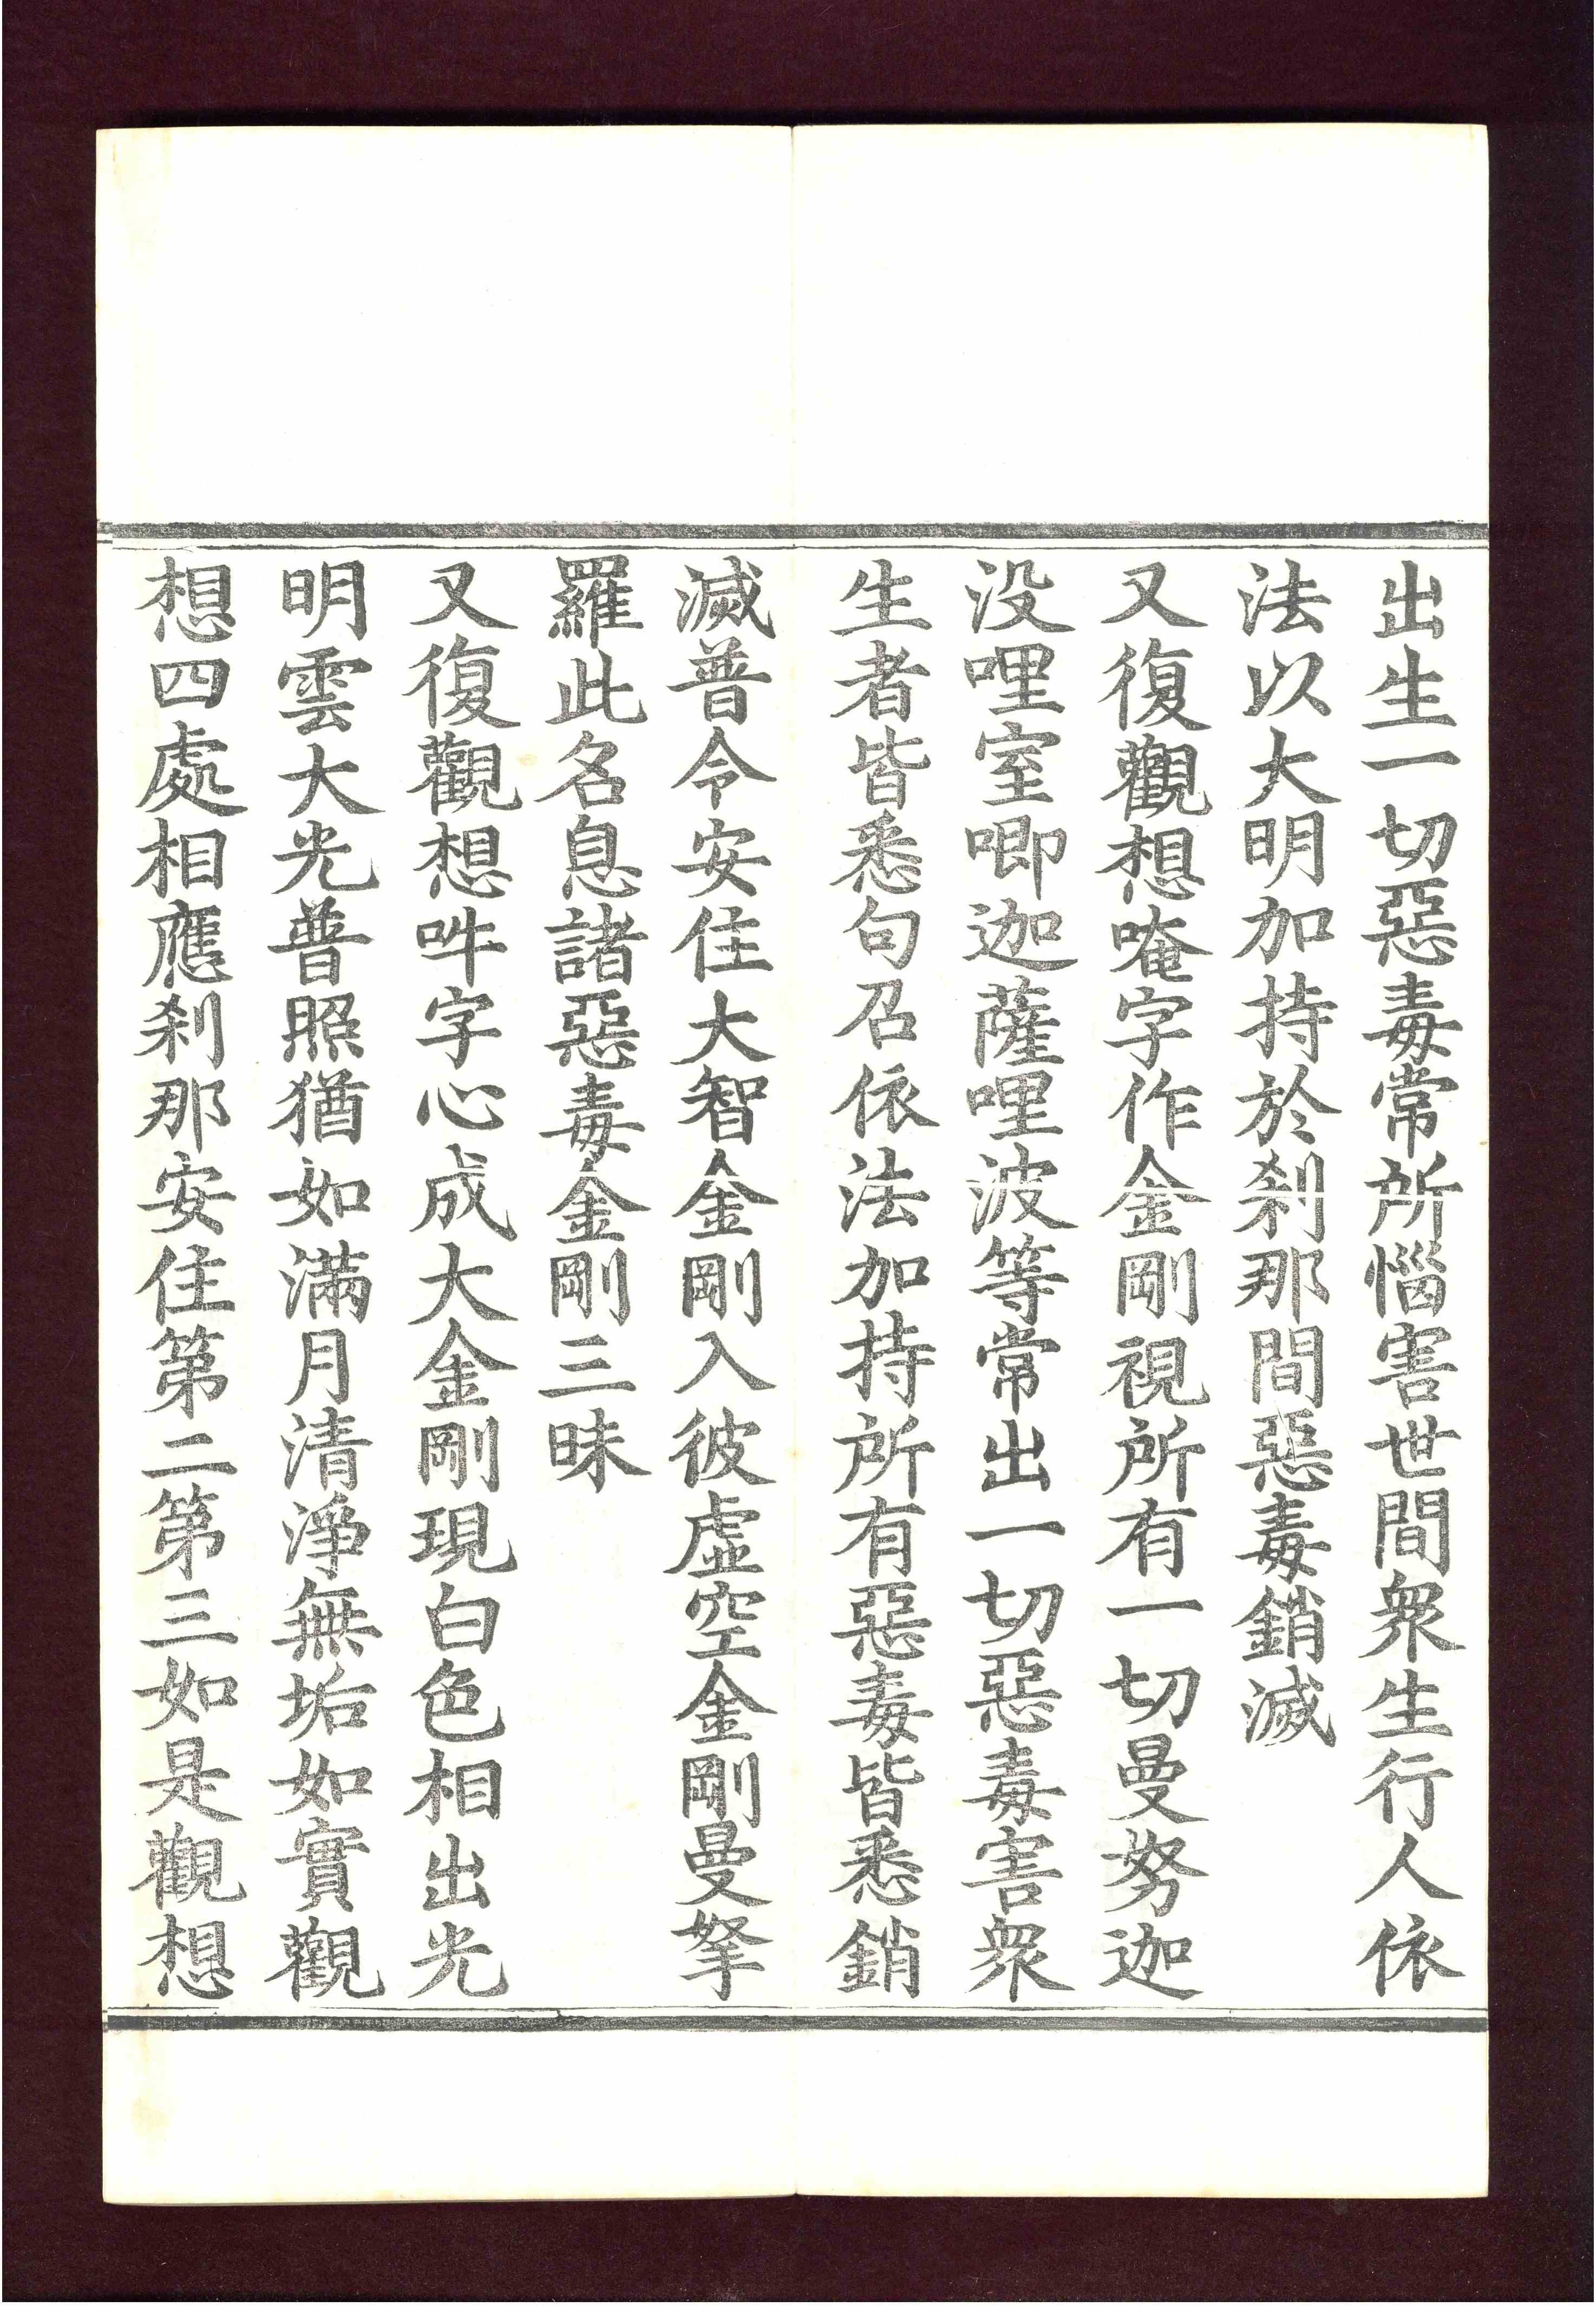 出生一切惡毒常所惱害世間衆生行人依
法以大明加持於刹那間惡毒銷滅
又復觀想唵字作金剛視所有一切曼努迦
没哩室唧迦薩哩波等常出一切惡毒害衆
生者皆悉句召依法加持所有惡毒皆悉銷
滅普令安住大智金剛入彼虛空金剛曼拏
羅此名息諸惡毒金剛三昧
又復觀想吽字心成大金剛現白色相出光
明雲大光普照猶如滿月清淨無垢如實觀
想四處相應刹那安住第二第三如是觀想